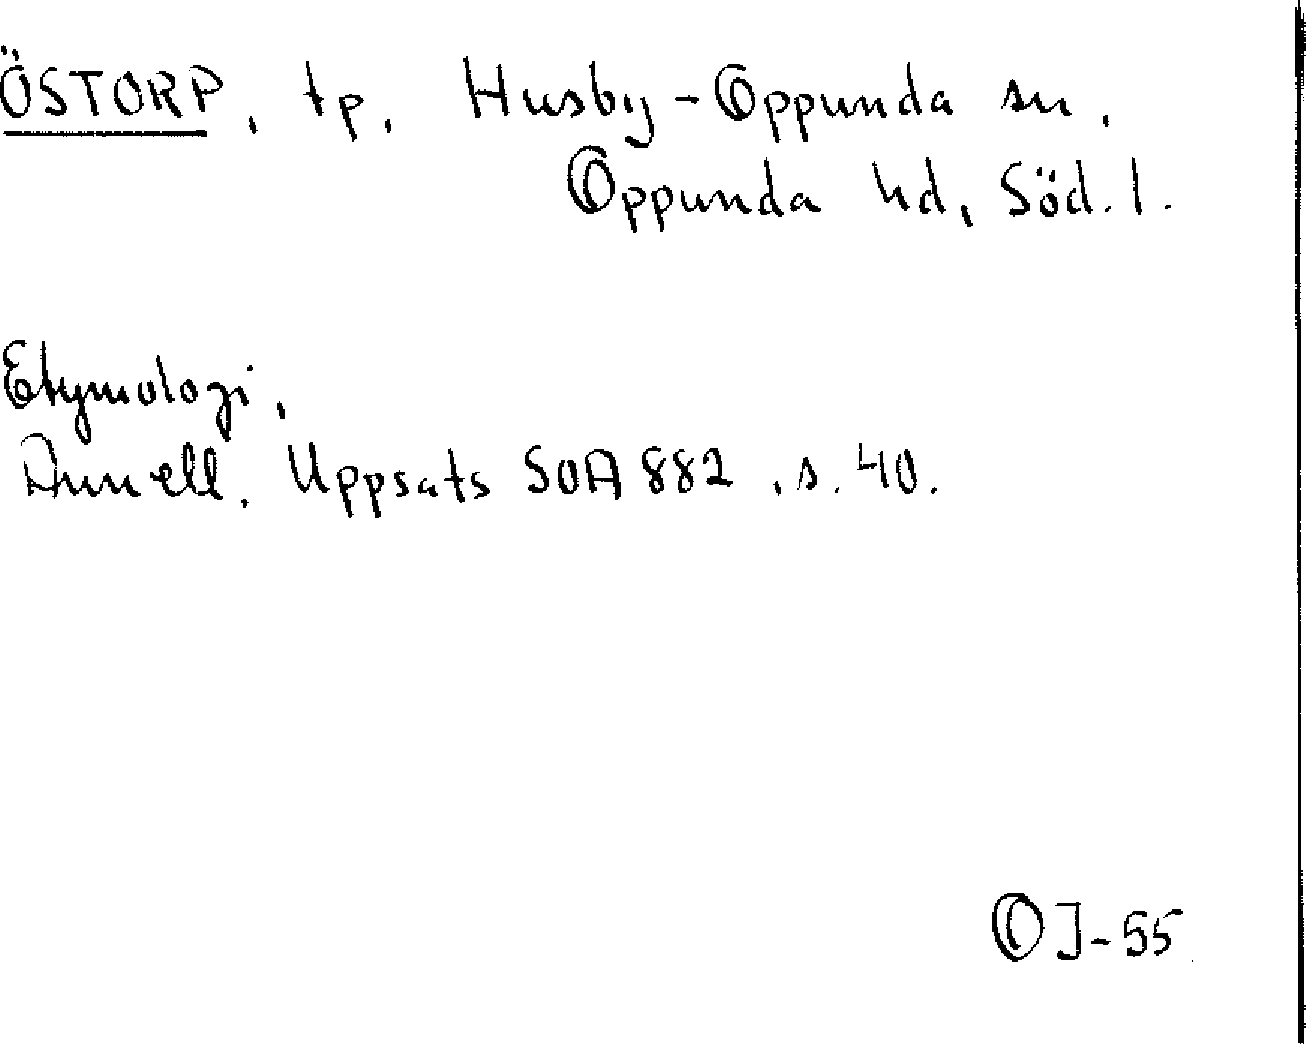 ÖSTORP, tp, Husby-Oppunda sn,
Oppunda hd, Söd.l.
Etymologi,
Uppsats SOA 882, s. 40.
OJ-55